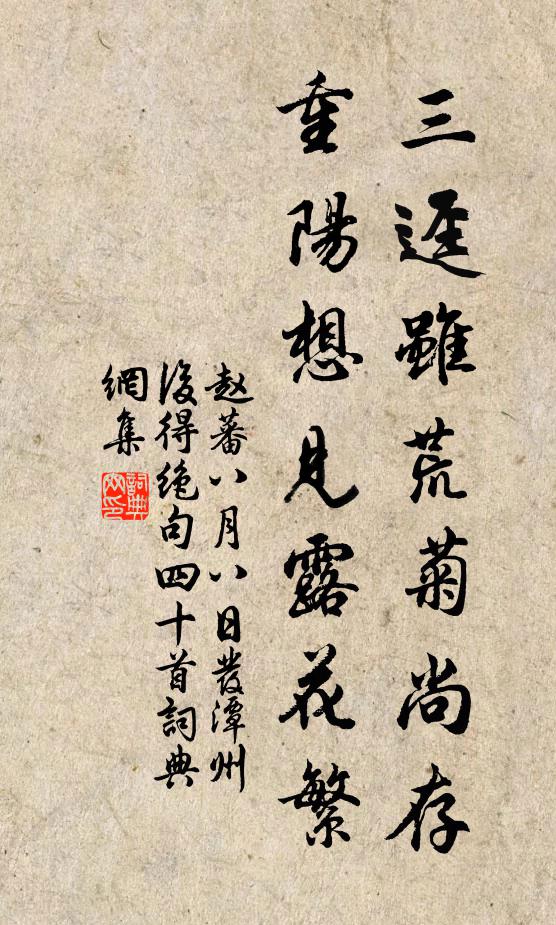 三逕雖荒菊尚存
重陽想見露花繁
赵蕃八月八日發潭州
後得絶句四十首詞典
網集
詞典
网印